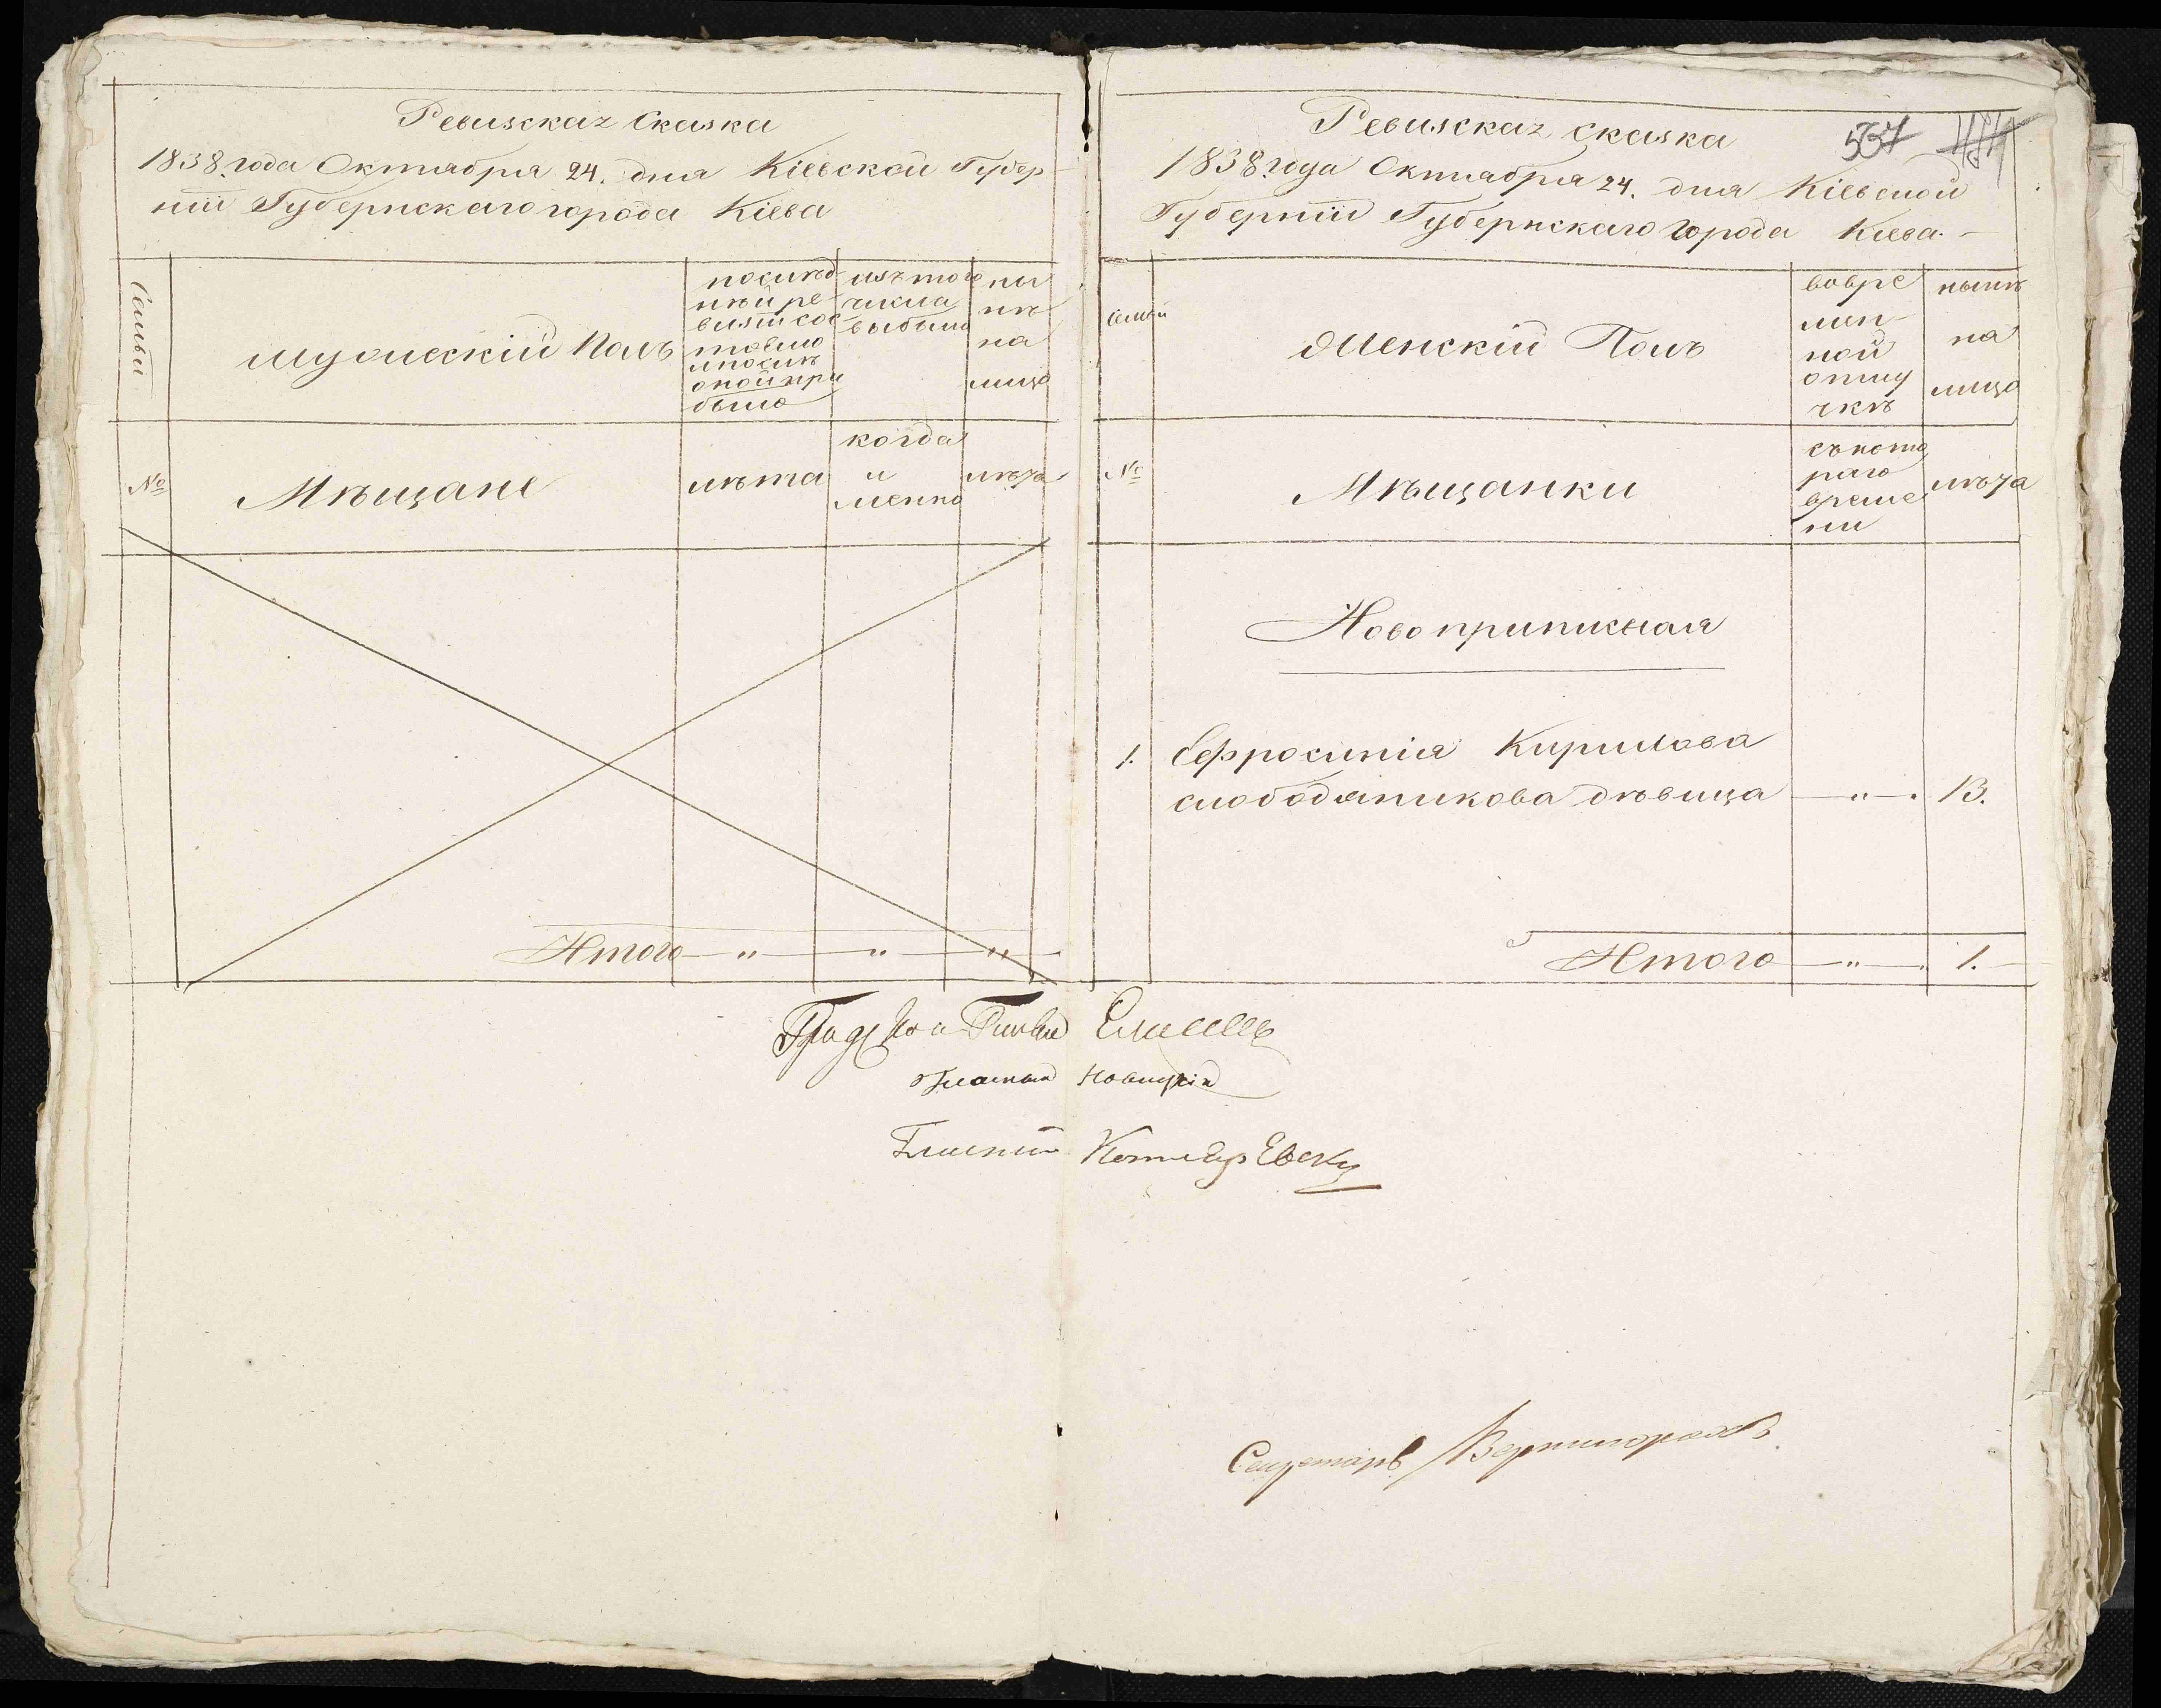 Ревизская сказка
1838. года Октября 24. дня Кіевской Губер-
ніи Губернскаго города Кіева
Семьи
мужескій полъ
послѣд-
нѣй ре-
визіи сос-
тояло
и послѣ
оной при
было
изъ того
числа
выбыло
ны
нѣ
на
лицо
№
Мѣщане
лѣта
когда
и
менно
лѣта
Итого — „ — „ — „ —
Ревизская сказка
537
1838. года Октября 24. дня Кіевской
Губерніи Губернскаго города Кіева. -
Семьи
Женскій Полъ
вовре
мен
ной
отлу
чкѣ
нынѣ
на
лицо
№
Мѣщанки
съ кото
раго
време
ни
лѣта
Новоприписная
1. Ефросинія Кирилова
слободяникова дѣвица — „ — . 13.
Итого — „ — . 1. —
Градской Глава Елисеевъ
Гласный Новицкій
Гласный
Секретарь